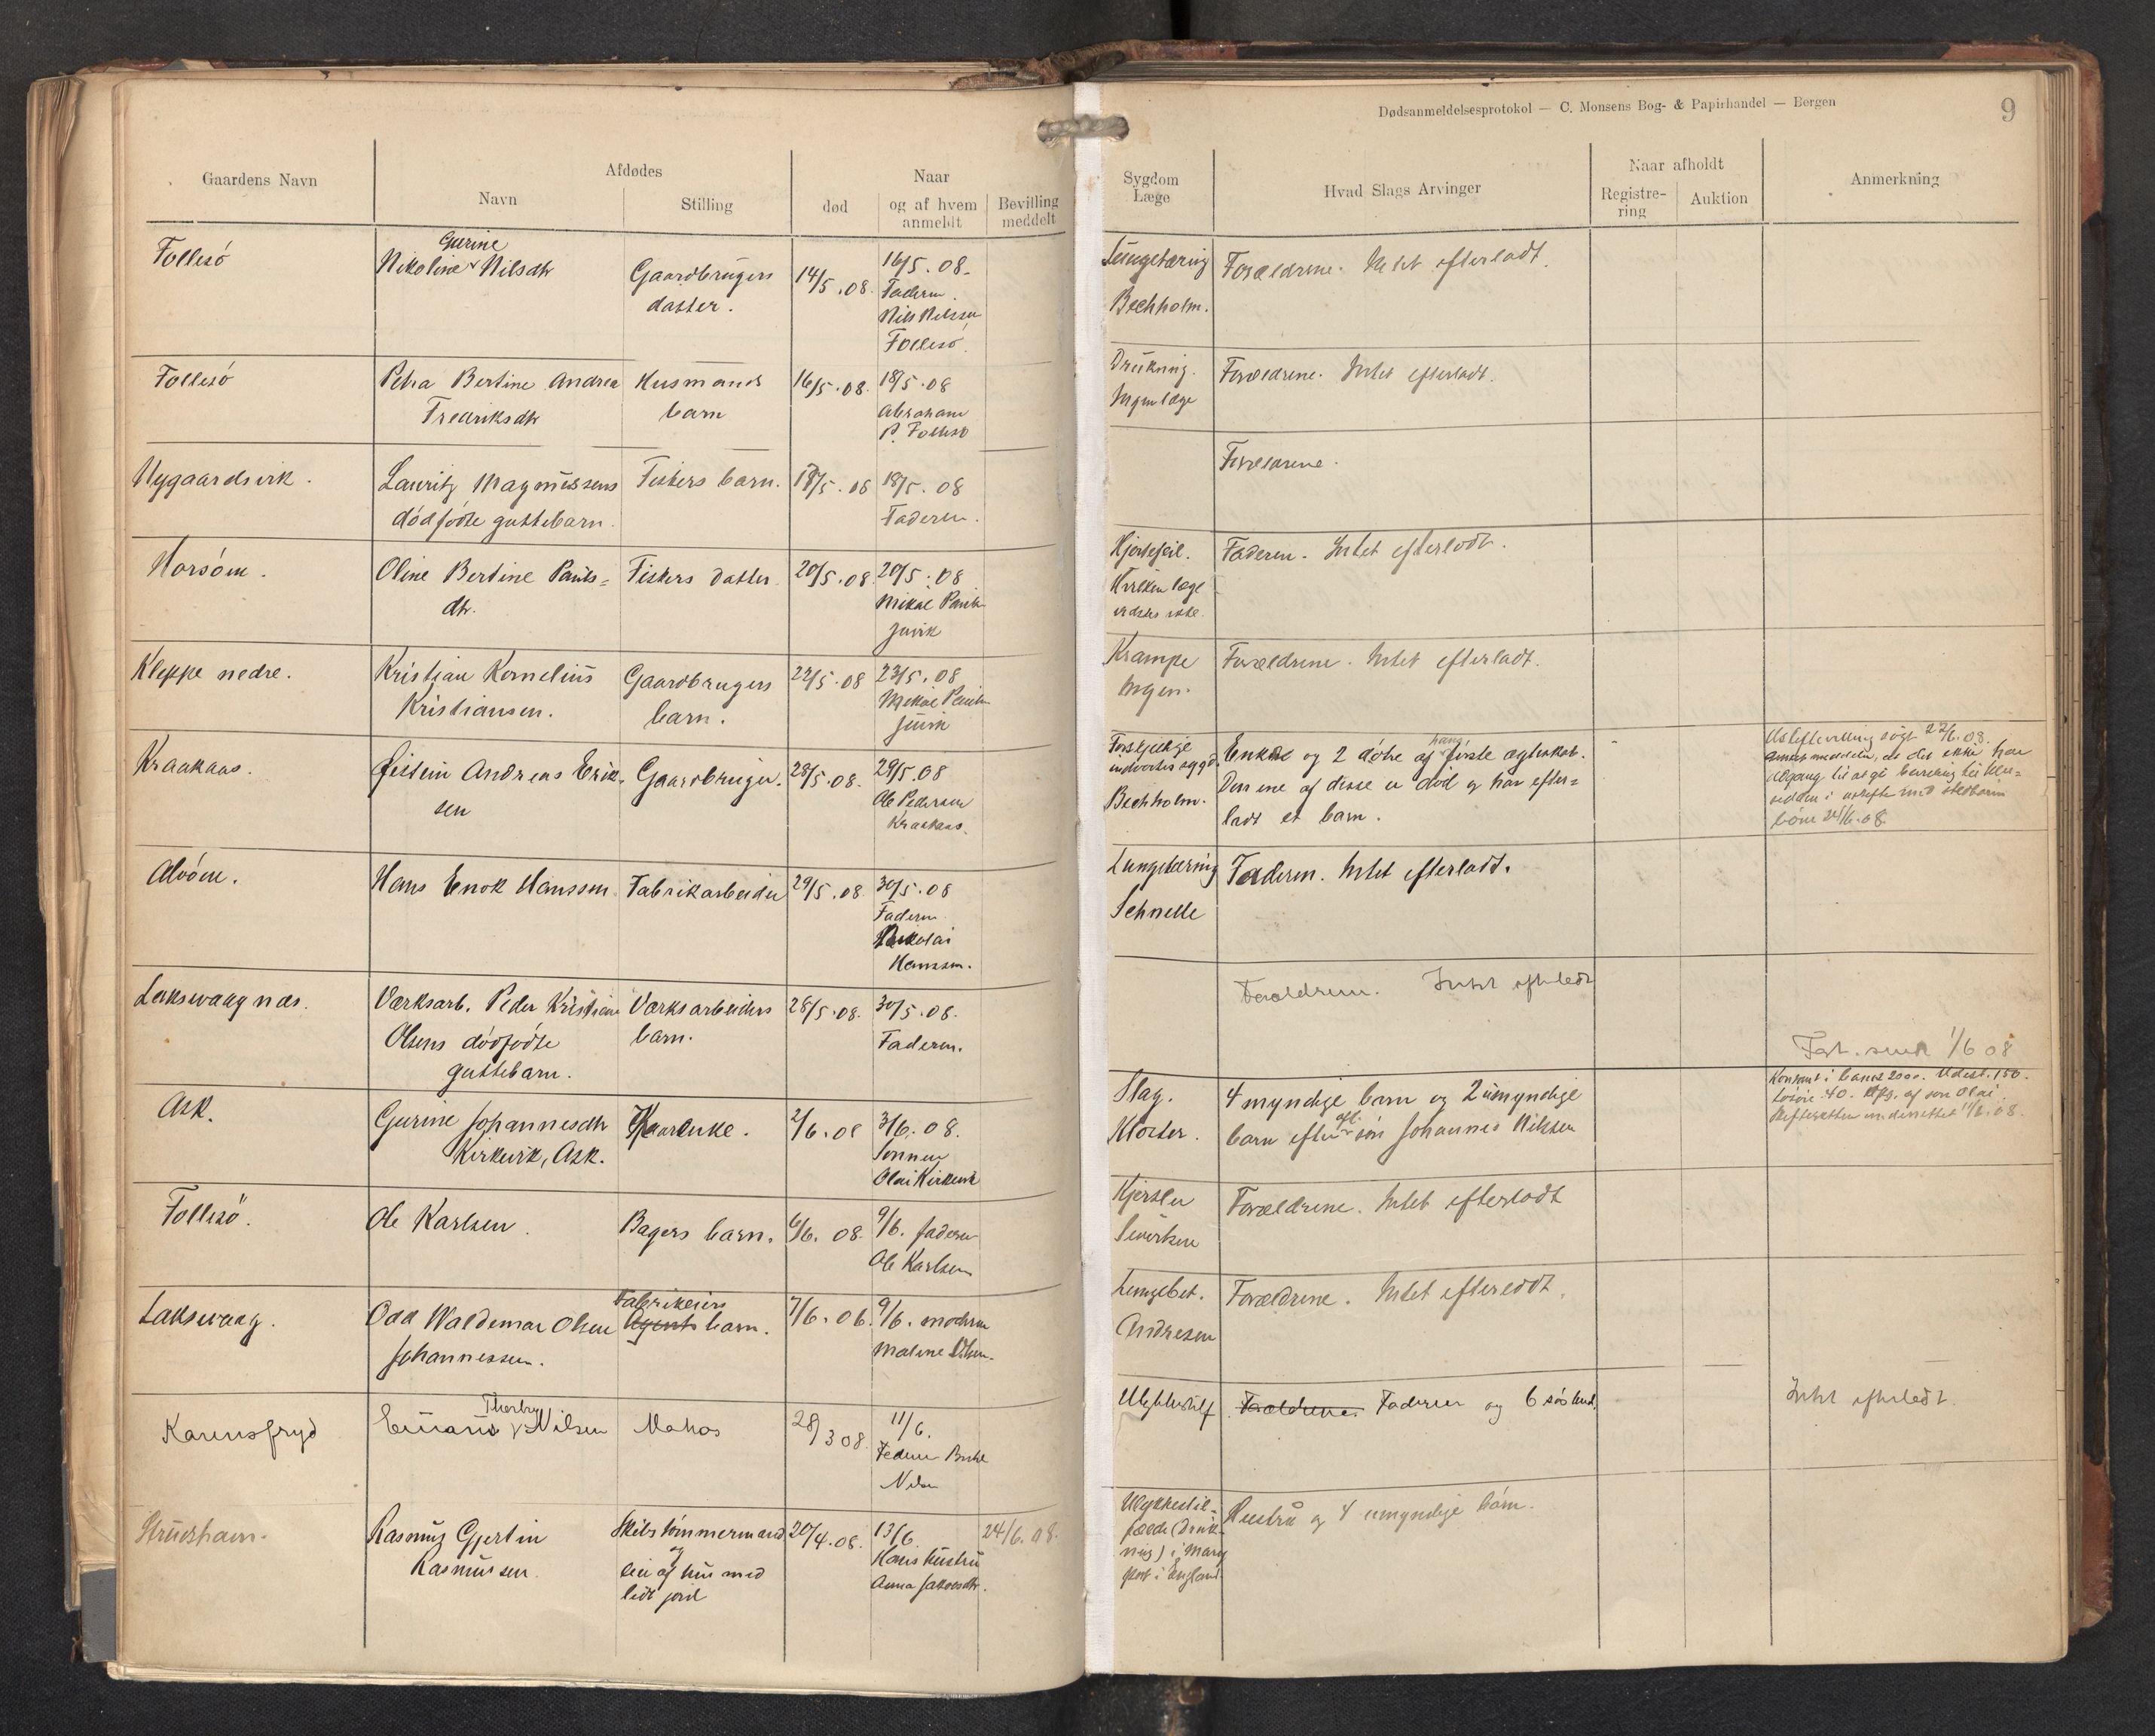 Dødsanmeldelsesprotokol — C. Monsens Bog- & Papirhandel — Bergen
9
Gaardens Navn
Afdødes
Navn
Stilling
Naar
død
og af hvem
anmeldt
Bevilling
meddelt
Sygdom
Læge
Hvad Slags Arvinger
Naar afholdt
Registre-
ring
Auktion
Anmerkning
Follesö
Gurine
Nikoline Nilsdtr
Gaardbrugers
datter.
14/5.08.
16/5.08.
Faderen.
Nils Nilssen
Follesö.
Lungetæring
Bechholm.
Forældrene. Intet efterladt.
Follesö
Petra Bertine Andrea
Fredriksdtr
Husmands
barn
16/5.08.
18/5.08
Abraham
P. Follesö
Drukning.
Ingen læge
Forældrene. Intet efterladt.
Nygaardsvik.
Lauritz Magnussens
dödfödte guttebarn.
Fiskers barn.
18/5.08
Faderen.
Forældrene.
Horsöen.
Oline Bertine Pauls=
dtr.
Fiskers datter
20/5.08
20/5.08
Mikal Pauls
Juvik
Hjertefeil.
Hvilken læge
vides ikke.
Faderen. Intet efterladt.
Kleppe nedre.
Kristian Kornelius
Kristiansen.
Gaardbrugers
barn.
22/5.08
23/5.08
Mikal Pauls
Juvik
Krampe
Ingen.
Forældrene. Intet efterladt.
Kraakaas.
Öistein Andreas Erik-
sen
Gaardbruger.
28/5.08.
29/5.08
Ole Pedersen
Kraakaas.
Forskjellige
indvortes sygd.
Bechholm.
Enke og 2 dötre af hans förste ægteskab.
Den ene af disse er död og har efter=
ladt et barn.
Uskiftebevilling sögt 22/6.08.
Amtet meddeler, at der ikke har
adgang til at gi bevilling til hen=
sidden i uskifte med stedbarns
börn 24/6.08.
Alvöen.
Hans Enok Hanssen
Fabrikarbeider
29/5.08.
30/5.08
Faderen
Nikolai
Hanssen.
Lungetæring
Schnelle
Faderen. Intet efterladt.
Laksevaag næs.
Værksarb. Peder Kristian
Olsens dödfödte
guttebarn.
Værksarbeiders
barn.
28/5.08.
30/5.08.
Faderen.
Forældrene. Intet efterladt
1/6 08
Ask.
Gurine Johannesdtr
Kirkevik, Ask.
Kaarenke.
2/6.08
3/6.08.
Sönnen
Olai Kirkevik
Slag.
Kloster.
4 myndige barn og 2 umyndige
barn efter afd. sön Johannes Nilsen
Kontant i bank 200.. Udest. 150.
Lösöre 40. Opg. af sön Olai.
Skifteretten underrettet 11/6.08.
Follesö.
Ole Karlsen.
Bagers barn.
6/6.08.
9/6. faderen
Ole Karlsen
Kjersler
Sivertsen
Forældrene. Intet efterladt
Laksevaag.
Odd Waldemar Olsen
Johannessen.
Fabrikeiers
Agents barn.
7/6.08.
9/6. moderen
Malene Olsen.
Lungebet.
Andresen
Forældrene. Intet efterladt.
Karensfryd
Thorleif
Einar Nilsen
Matros
28/3 08.
11/6.
Faderen
Nilsen
Forældrene. Faderen og 6 söskend.
Intet efterladt.
Strudshavn.
Rasmus Gjertin
Rasmussen.
Skibstömmermand
og
eier af hus med
lidt jord
20/4.08.
13/6.
Hans hustru
Anna Jakobsdtr.
24/6.08.
Ulykkestil-
fælde (Druk-
ning) i Mary
port i England
Hustru og 4 umyndige börn.